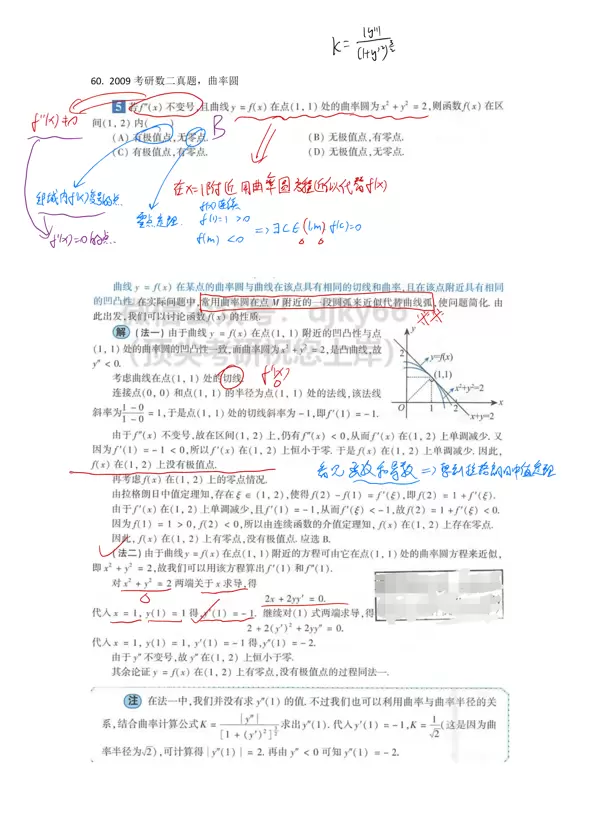 K = |y''| / (1+y'²)^{3/2}
60. 2009 考研数二真题，曲率圆
5 若 f''(x) 不变号,且曲线 y = f(x) 在点(1, 1) 处的曲率圆为 x² + y² = 2,则函数 f(x) 在区
间(1, 2) 内( )
(A) 有极值点,无零点. (B) 无极值点,有零点.
(C) 有极值点,有零点. (D) 无极值点,无零点.
B
f''(x)≠0
在x=1附近用曲率圆方程近似代替f(x)
f(x)连续
零点定理
f(1)=1 >0
f(m) <0
=> ∃ C∈(1,m) f(c)=0
f'(x)=0 的点.
曲线 y = f(x) 在某点的曲率圆与曲线在该点具有相同的切线和曲率,且在该点附近具有相同
的凹凸性. 在实际问题中,常用曲率圆在点 M 附近的一段圆弧来近似代替曲线弧,使问题简化. 由
此出发,我们可以讨论函数 f(x) 的性质.
解 (法一) 由于曲线 y = f(x) 在点(1, 1) 附近的凹凸性与点
(1, 1) 处的曲率圆的凹凸性一致,而曲率圆为 x² + y² = 2,是凸曲线,故
y'' < 0.
考虑曲线在点(1, 1) 处的切线.
f'(x)
连接点(0, 0) 和点(1, 1) 的半径为点(1, 1) 处的法线,该法线
斜率为 (1 − 0)/(1 − 0) = 1,于是点(1, 1) 处的切线斜率为 − 1,即 f'(1) = − 1.
y
2
y=f(x)
(1,1)
x²+y²=2
O 1 2 x
x+y=2
由于 f''(x) 不变号,故在区间(1, 2) 上,仍有 f''(x) < 0,从而 f'(x) 在(1, 2) 上单调减少. 又
因为 f'(1) = − 1 < 0,所以 f'(x) 在(1, 2) 上恒小于零. 于是 f(x) 在(1, 2) 上单调减少. 因此,
f(x) 在(1, 2) 上没有极值点.
再考虑 f(x) 在(1, 2) 上的零点情况.
函数和导数 => 要到拉格朗日中值定理
由拉格朗日中值定理知,存在 ξ ∈ (1, 2),使得 f(2) − f(1) = f'(ξ),即 f(2) = 1 + f'(ξ).
由于 f'(x) 在(1, 2) 上单调减少,且 f'(1) = − 1,从而 f'(ξ) < − 1,故 f(2) = 1 + f'(ξ) < 0.
因为 f(1) = 1 > 0, f(2) < 0,所以由连续函数的介值定理知, f(x) 在(1, 2) 上存在零点.
因此, f(x) 在(1, 2) 上有零点,没有极值点. 应选 B.
(法二) 由于曲线 y = f(x) 在点(1, 1) 附近的方程可由它在点(1, 1) 处的曲率圆方程来近似,
即 x² + y² = 2,故我们可以用该方程算出 f'(1) 和 f''(1).
对 x² + y² = 2 两端关于 x 求导,得
2x + 2yy' = 0.
代入 x = 1, y(1) = 1 得 y'(1) = − 1. 继续对(1) 式两端求导,得
2 + 2(y')² + 2yy'' = 0.
代入 x = 1, y(1) = 1, y'(1) = − 1 得, y''(1) = − 2.
由于 y'' 不变号,故 y'' 在(1, 2) 上恒小于零.
其余论证 y = f(x) 在(1, 2) 上有零点,没有极值点的过程同法一.
注 在法一中,我们并没有求 y''(1) 的值. 不过我们也可以利用曲率与曲率半径的关
系,结合曲率计算公式 K = |y''| / [1 + (y')²]^{3/2} 求出 y''(1). 代入 y'(1) = − 1, K = 1/√2 (这是因为曲
率半径为√2),可计算得 | y''(1) | = 2. 再由 y'' < 0 可知 y''(1) = − 2.